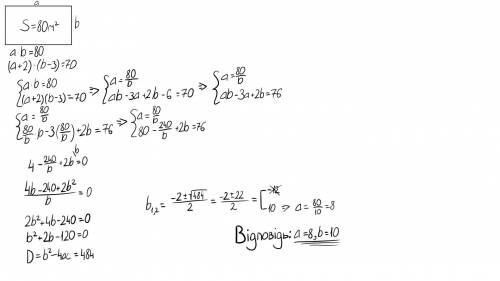 a
S=80м² b
a·b=80
(a+2)·(b-3)=70
{a·b=80 (a+2)(b-3)=70 => {a=80/b ab-3a+2b-6=70 => {a=80/b ab-3a+2b=76
{a=80/b 80/b·b-3(80/b)+2b=76 => {a=80/b 80-240/b+2b=76
4-240/b+2b=0
(4b-240+2b²)/b=0
2b²+4b-240=0
b²+2b-120=0
D=b²-4ac=484
b₁,₂=(-2±√484)/2=(-2±22)/2=[-12 10 => a=80/10=8
Відповідь: a=8, b=10